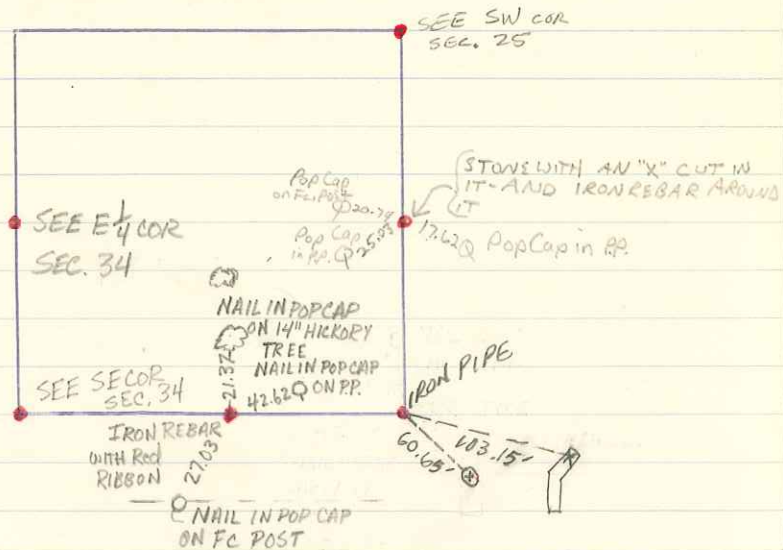 SEE SW COR
SEC. 25
STONE WITH AN "X" CUT IN
IT - AND IRON REBAR AROUND
IT
Pop Cap
on Fc. Post
20.79
Pop Cap
in P.P.
25.93
17.62 Pop Cap in P.P.
SEE E 1/4 COR
SEC. 34
NAIL IN POP CAP
ON 14" HICKORY
TREE
21.37
NAIL IN POP CAP
42.62 ON P.P.
IRON PIPE
SEE SE COR
SEC. 34
IRON REBAR
WITH Red
RIBBON
27.03
60.65
103.15
NAIL IN POP CAP
ON FC POST